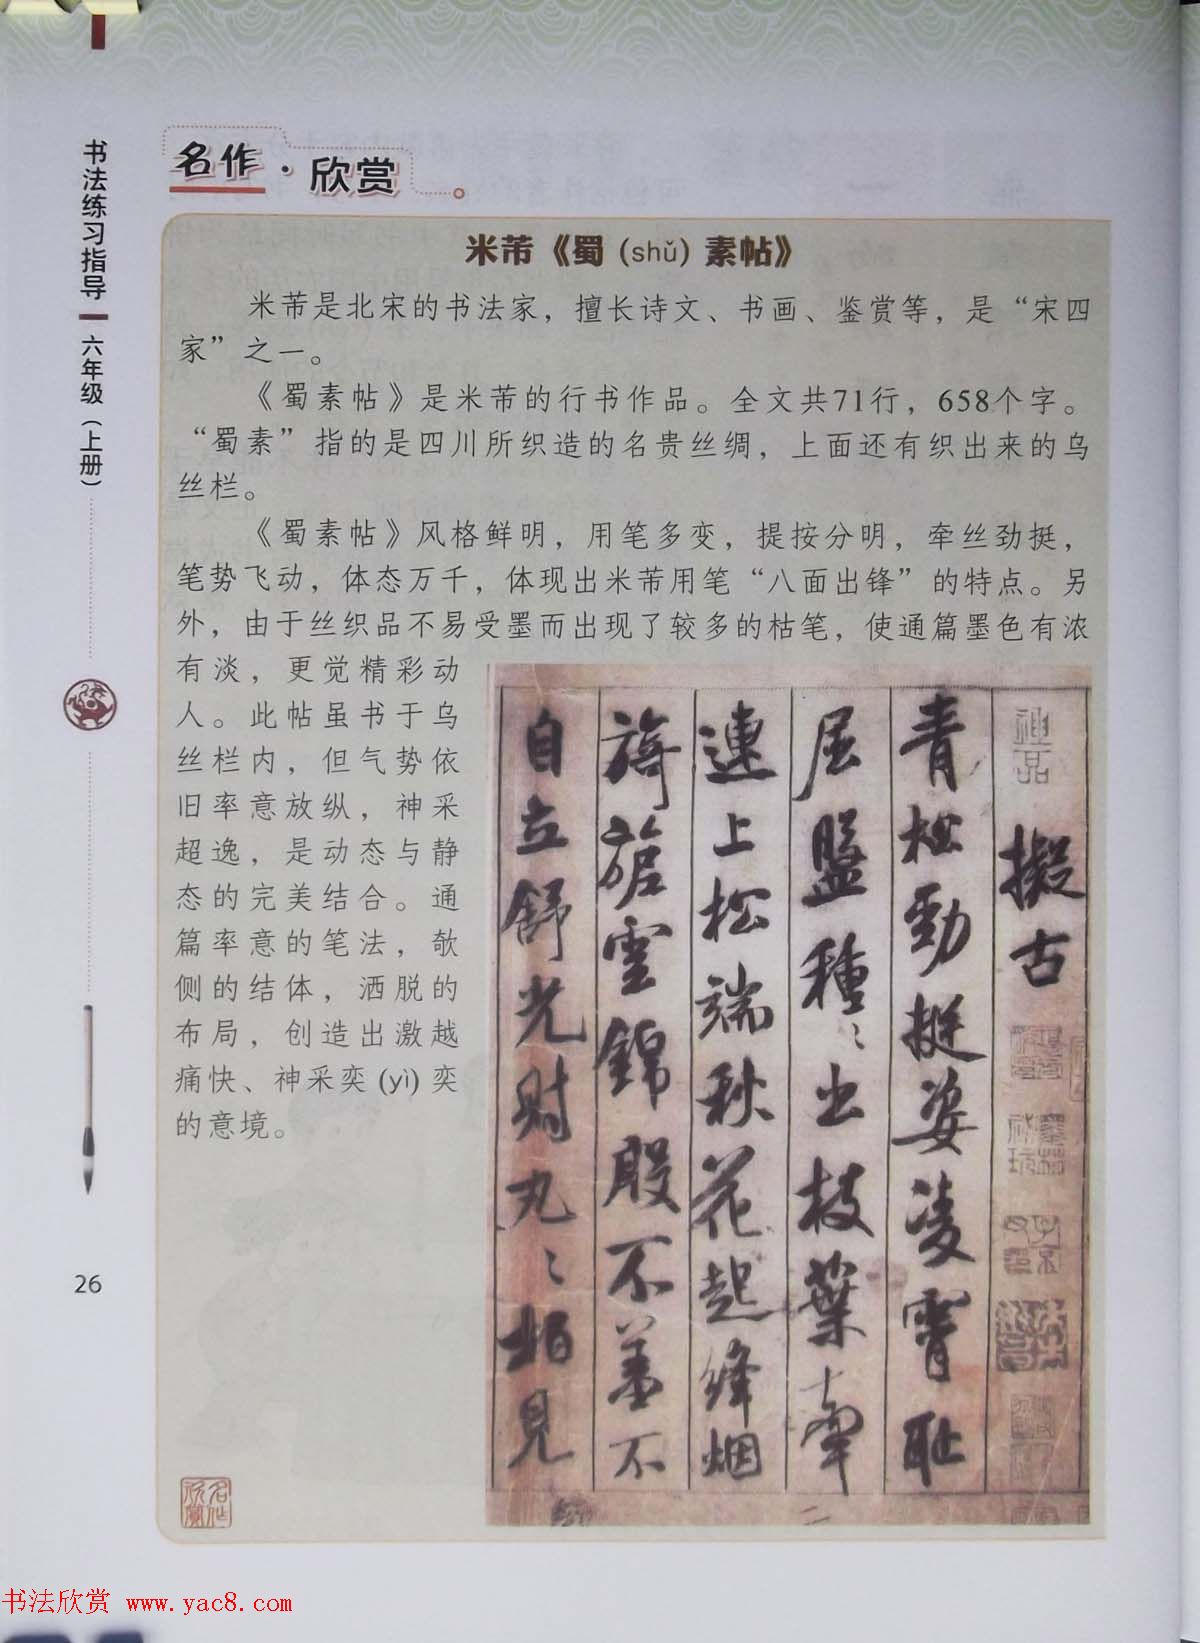 书法练习指导
六年级（上册）
26
名作·欣赏
米芾《蜀（shǔ）素帖》
米芾是北宋的书法家，擅长诗文、书画、鉴赏等，是“宋四
家”之一。
《蜀素帖》是米芾的行书作品。全文共71行，658个字。
“蜀素”指的是四川所织造的名贵丝绸，上面还有织出来的乌
丝栏。
《蜀素帖》风格鲜明，用笔多变，提按分明，牵丝劲挺，
笔势飞动，体态万千，体现出米芾用笔“八面出锋”的特点。另
外，由于丝织品不易受墨而出现了较多的枯笔，使通篇墨色有浓
有淡，更觉精彩动
人。此帖虽书于乌
丝栏内，但气势依
旧率意放纵，神采
超逸，是动态与静
态的完美结合。通
篇率意的笔法，欹
侧的结体，洒脱的
布局，创造出激越
痛快、神采奕(yì)奕
的意境。
神品
擬古
青松勁挺姿凌霄恥
屈盤種ミ出枝葉牽
連上松端秋花起絳烟
旖旎雲錦殷不羞不
自立舒光射丸ミ柏見
名作欣赏
书法欣赏 www.yac8.com